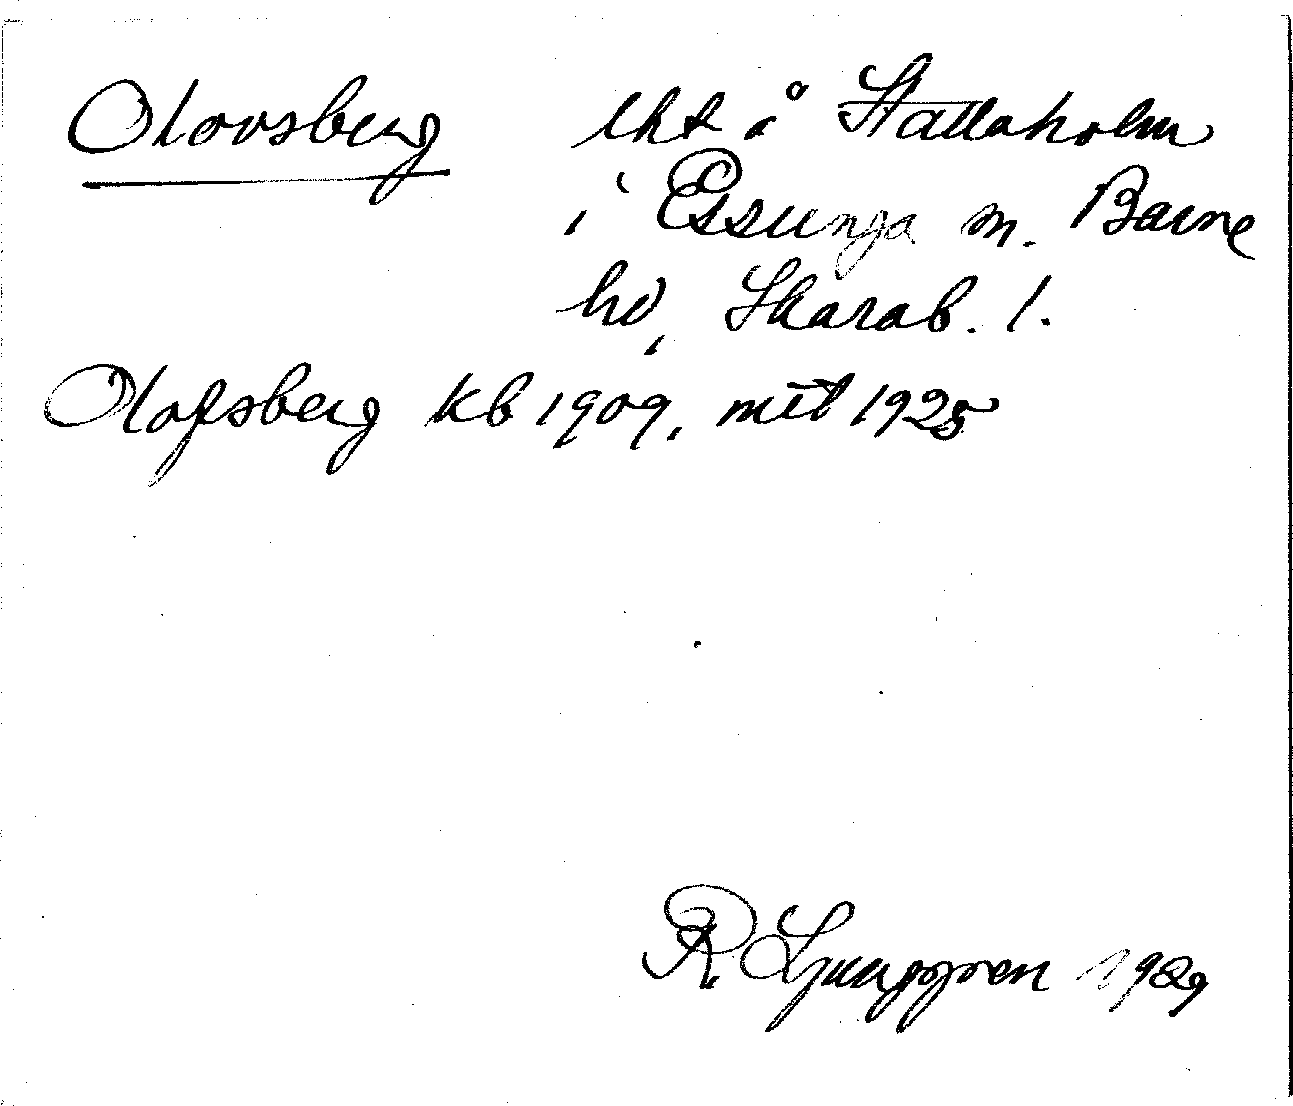 Olovsberg lht å Stallaholm
i Essunga sn. Barne
hd, Skarab. l.
Olofsberg kb 1909, mtl 1925
R Ljunggren 1929